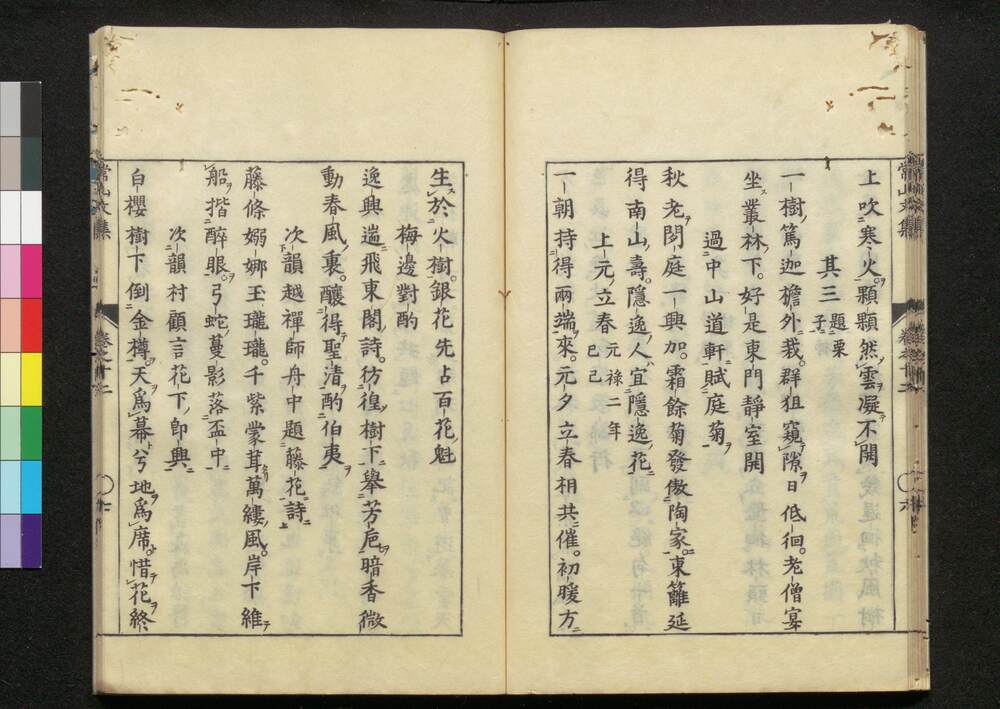 上吹寒火。顆顆然雲凝不開
其三 題栗子
一樹篤迦檐外栽。群狙窺隙日低徊。老僧宴
坐叢林下。好是東門靜室開
過中山道軒賦庭菊
秋老閉庭一興加。霜餘菊發傲陶家。東籬延
得南山壽。隱逸人宜隱逸花
上元立春 元祿二年己巳
一朝持得兩端來。元夕立春相共催。初暖方
生於火樹。銀花先占百花魁
梅邊對酌
逸興遄飛東閣詩。彷徨樹下舉芳巵。暗香微
動春風裏。釀得聖清酌伯夷
次韻越禪師舟中題藤花詩
藤條嫋娜玉瓏瓏。千紫蒙茸萬縷風。岸下維
船揩醉眼。弓蛇蔓影落盃中
次韻村顧言花下即興
白櫻樹下倒金樽。天爲幕兮地爲席。惜花終
常山文集
常山文集